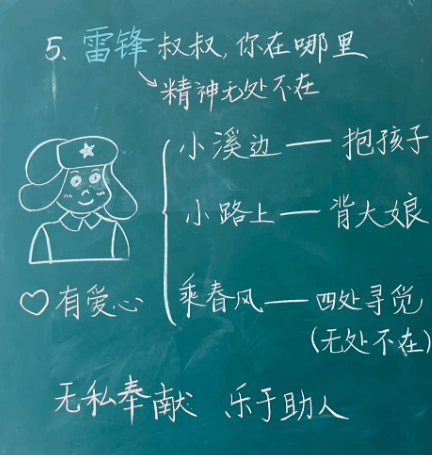 5、雷锋叔叔,你在哪里
精神无处不在
小溪边——抱孩子
小路上——背大娘
♡有爱心
乘春风——四处寻觅
(无处不在)
无私奉献 乐于助人